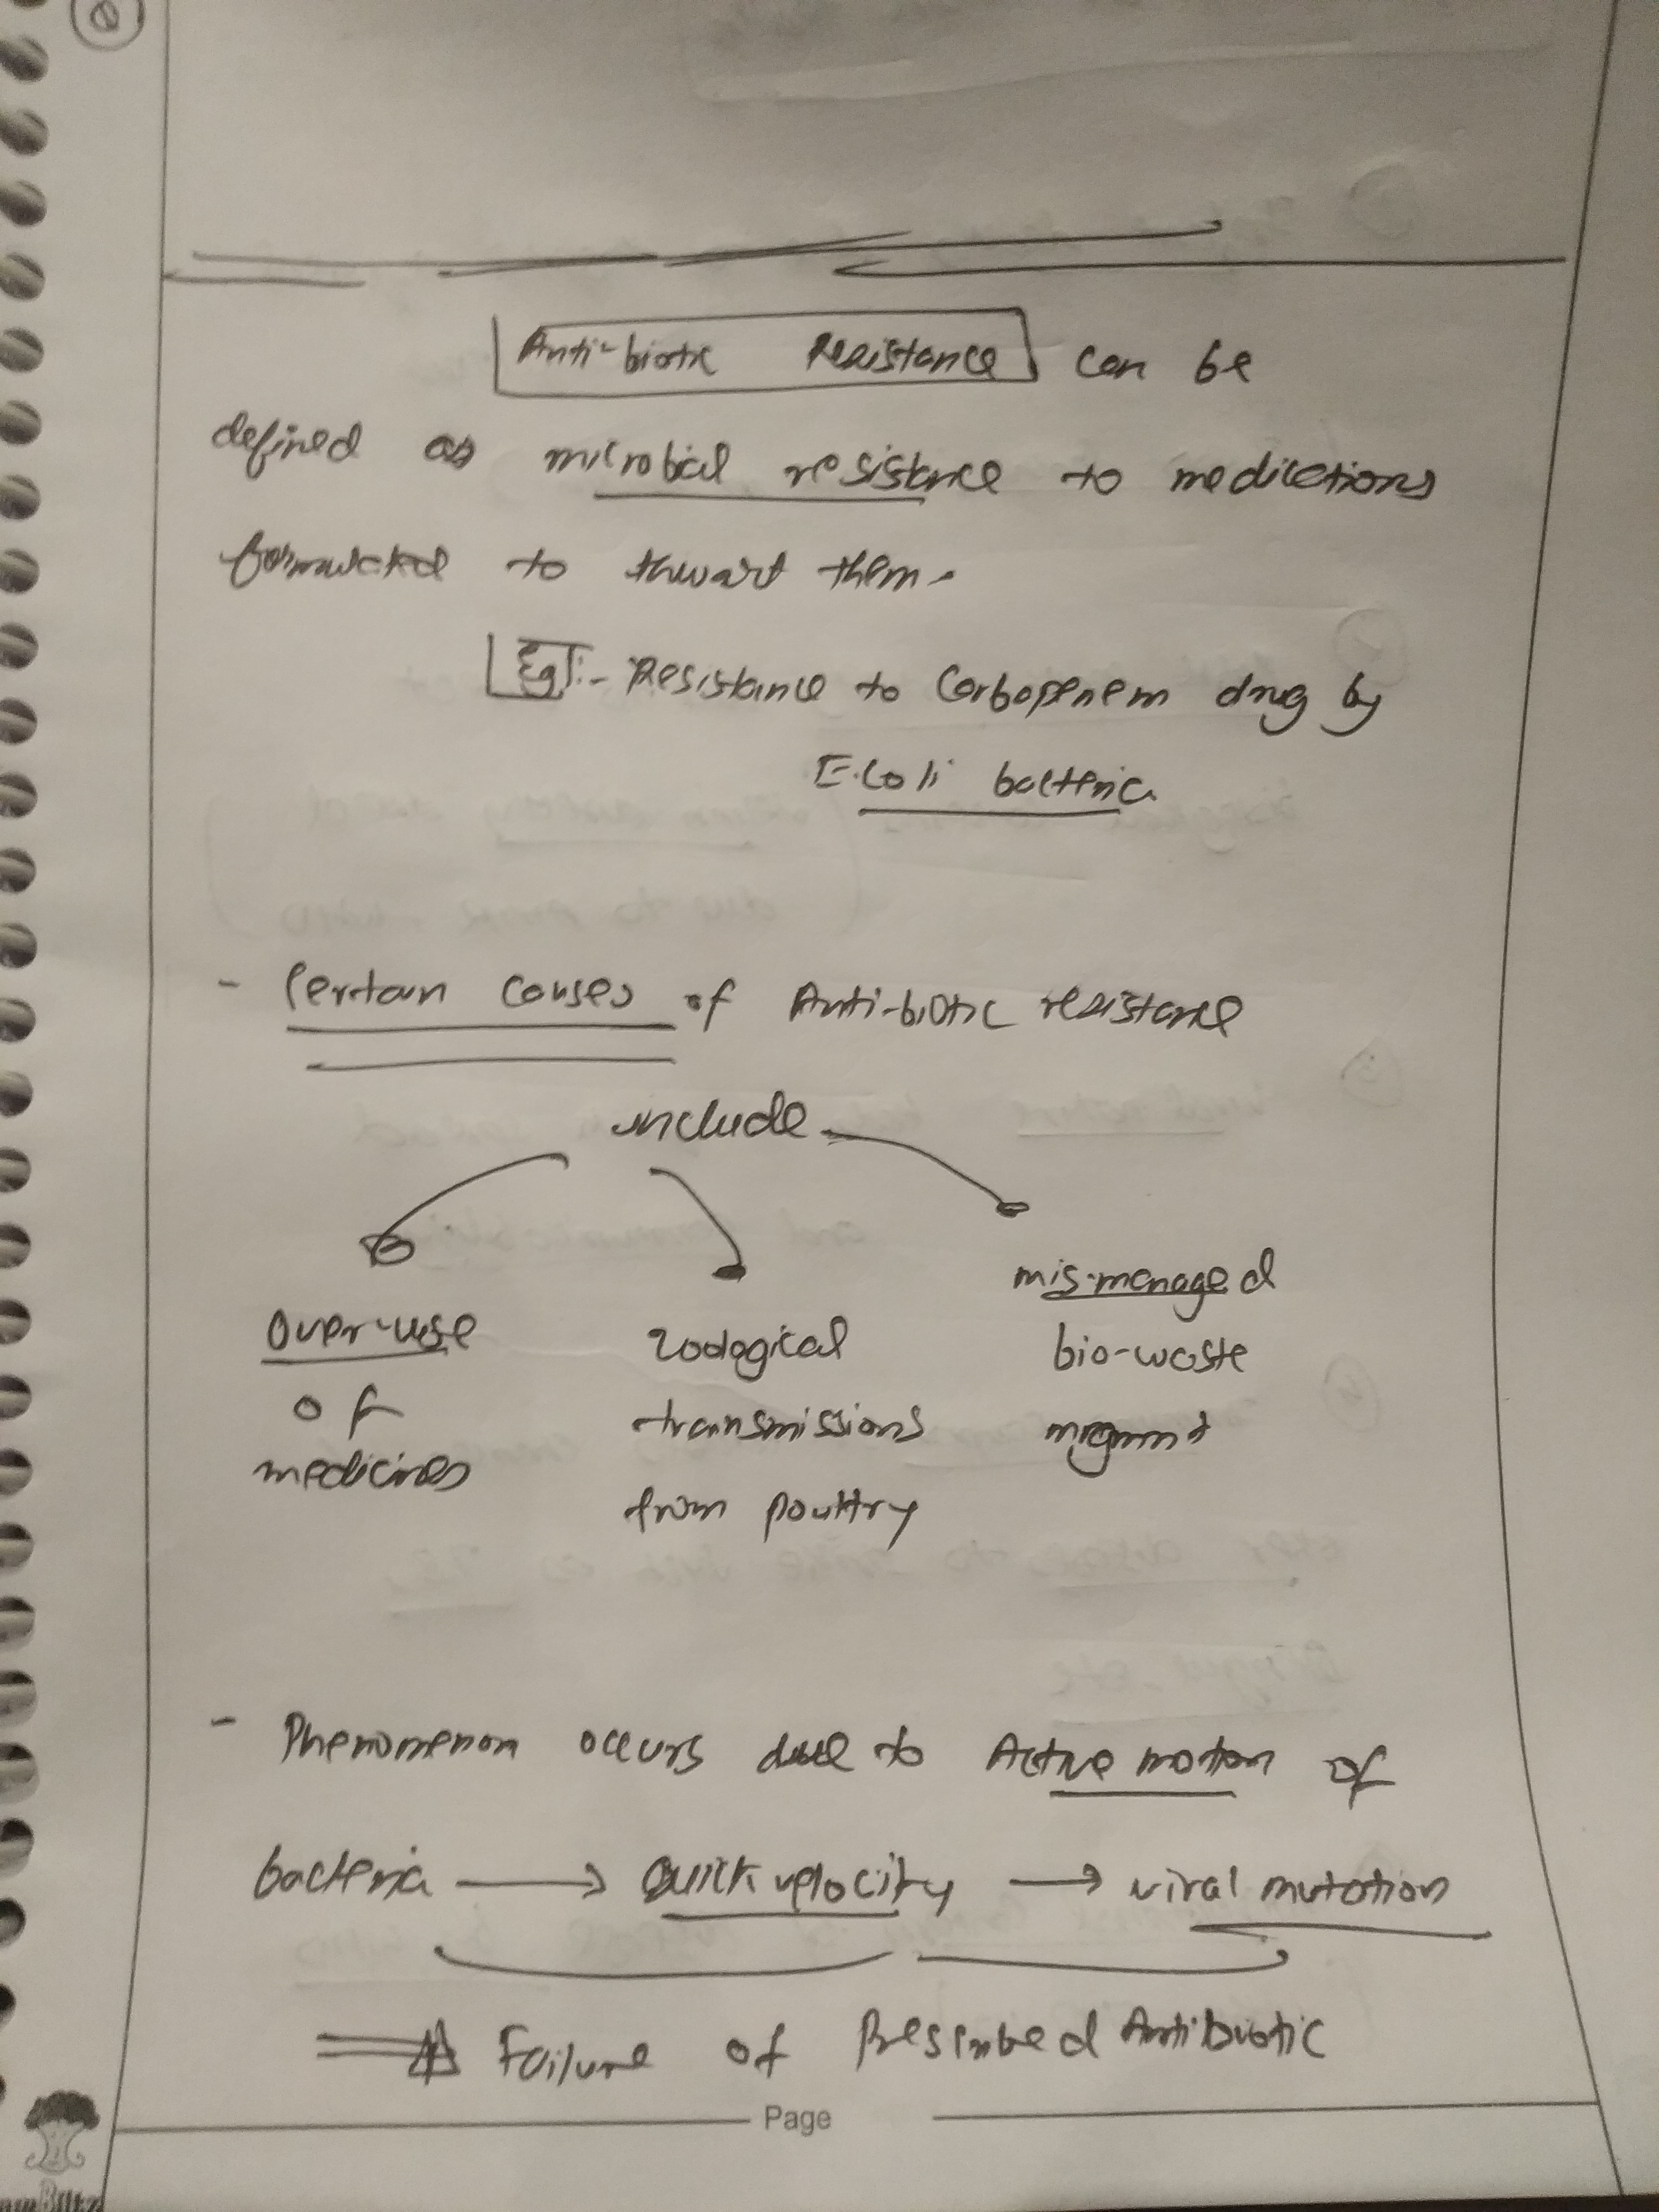 Anti-biotic Resistance can be
defined as microbial resistance to medications
formulated to thwart them.
Eg:- Resistance to Carbapenem drug by
E.Coli bacteria
- Certain causes of Anti-biotic resistance
include
Over-use
of
medicines
zoological
transmissions
from poultry
mis-managed
bio-waste
mgmnt
- Phenomenon occurs due to Active motion of
bacteria → Quick velocity → viral mutation
⇒ Failure of Prescribed Antibiotic
Page